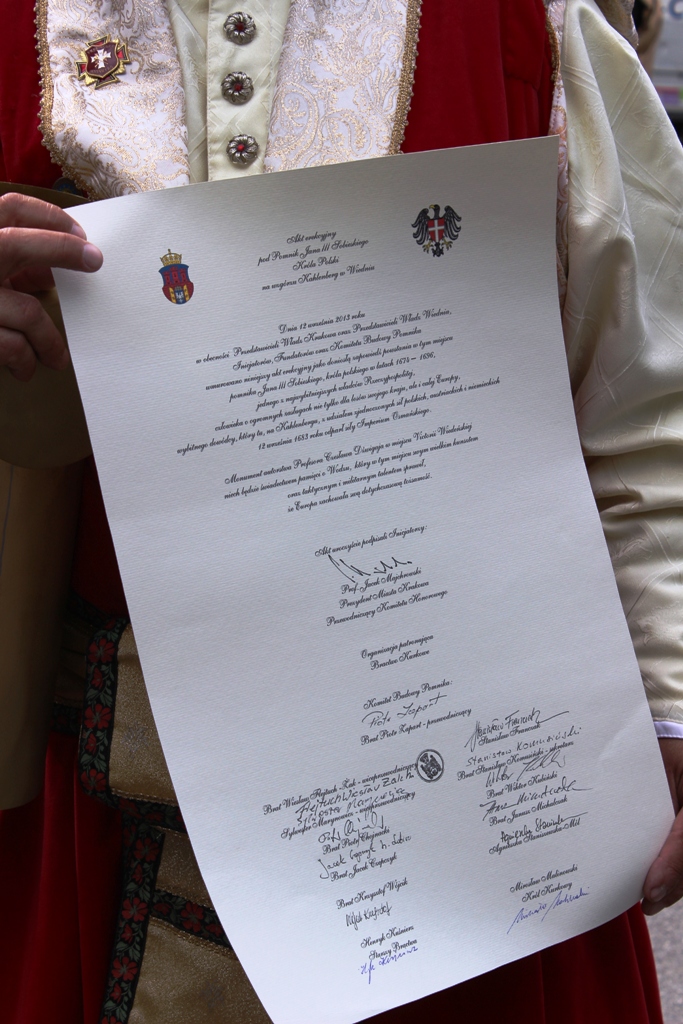 Akt erekcyjny
pod Pomnik Jana III Sobieskiego
Króla Polski
na wzgórzu Kahlenberg w Wiedniu
Dnia 12 września 2013 roku
w obecności Przedstawicieli Władz Krakowa oraz Przedstawicieli Władz Wiednia,
Inicjatorów, Fundatorów oraz Komitetu Budowy Pomnika
wmurowano niniejszy akt erekcyjny jako doniosłą zapowiedź powstania w tym miejscu
pomnika Jana III Sobieskiego, króla polskiego w latach 1674 – 1696,
jednego z najwybitniejszych władców Rzeczypospolitej,
człowieka o ogromnych zasługach nie tylko dla losów swojego kraju, ale i całej Europy,
wybitnego dowódcy, który tu, na Kahlenbergu, z udziałem zjednoczonych sił polskich, austriackich i niemieckich
12 września 1683 roku odparł siły Imperium Osmańskiego.
Monument autorstwa Profesora Czesława Dźwigaja w miejscu Victorii Wiedeńskiej
niech będzie świadectwem pamięci o Wodzu, który w tym miejscu swym wielkim kunsztem
oraz taktycznym i militarnym talentem sprawił,
że Europa zachowała swą dotychczasową tożsamość.
Akt uroczyście podpisali Inicjatorzy:
Prof. Jacek Majchrowski
Prezydent Miasta Krakowa
Przewodniczący Komitetu Honorowego
Organizacja patronująca
Bractwo Kurkowe
Komitet Budowy Pomnika:
Piotr Zapart
Brat Piotr Zapart - przewodniczący
Stanisław Franczak
Brat Wiesław Flejtuch Żak - wiceprzewodniczący
Brat Stanisław Komusiński - sekretarz
Sylwester Marynowicz - wiceprzewodniczący
Brat Wiktor Kubiński
Brat Piotr Chojnacki
Brat Janusz Michalczak
Brat Jacek Capczyk
Agnieszka Staniszewska-Mól
Brat Krzysztof Wójcik
Mirosław Malinowski
Król Kurkowy
Henryk Kuśnierz
Starszy Bractwa